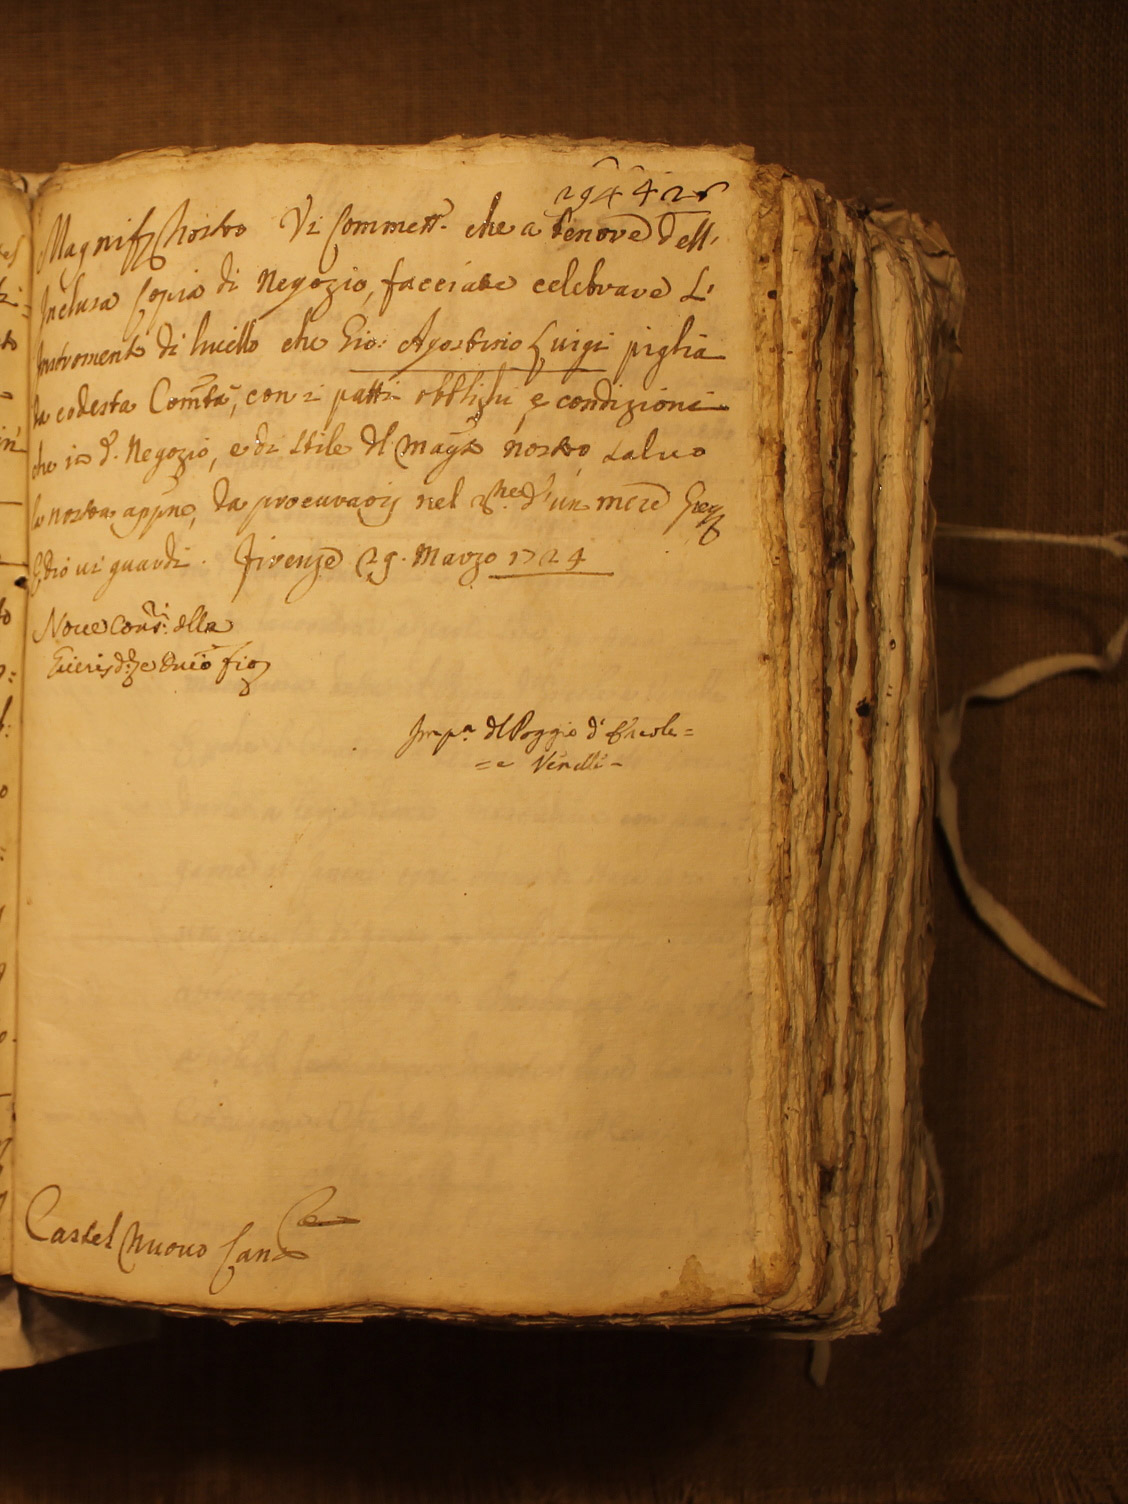 294 42
Magnif: Nostro Vi Commett. che a tenore dell'
Inclusa Copia di Negozio, facciate celebrare L'
Instromento di livello che Gio: Agostino Luigi piglia
da codesta Comtà, con i patti obblighi e condizioni
che in d. Negozio, e di stile dl mag.to nostro salvo
la nostra appne, da procurarsi nel d'un mese
E dio vi guardi. Firenze 29. Marzo 1724
Nove Cons. della
Giurisd.e e dnio fio
Imp.a dl Poggio d'
= e Vinelli =
Castel Nuovo Canc